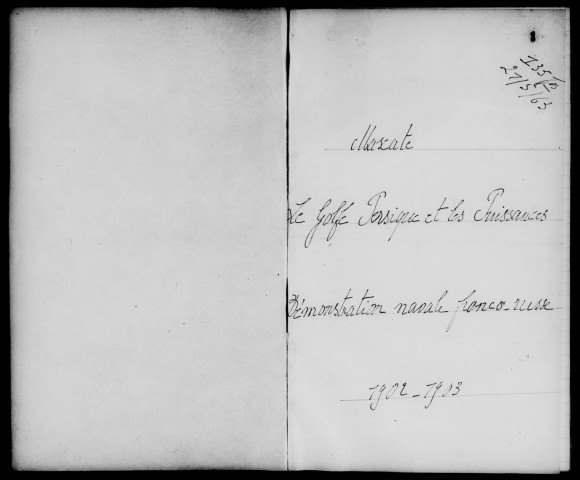 Mascate
Le Golfe Persique et les Puissances
Démonstration navale franco-russe
1902-1903
21/5/63